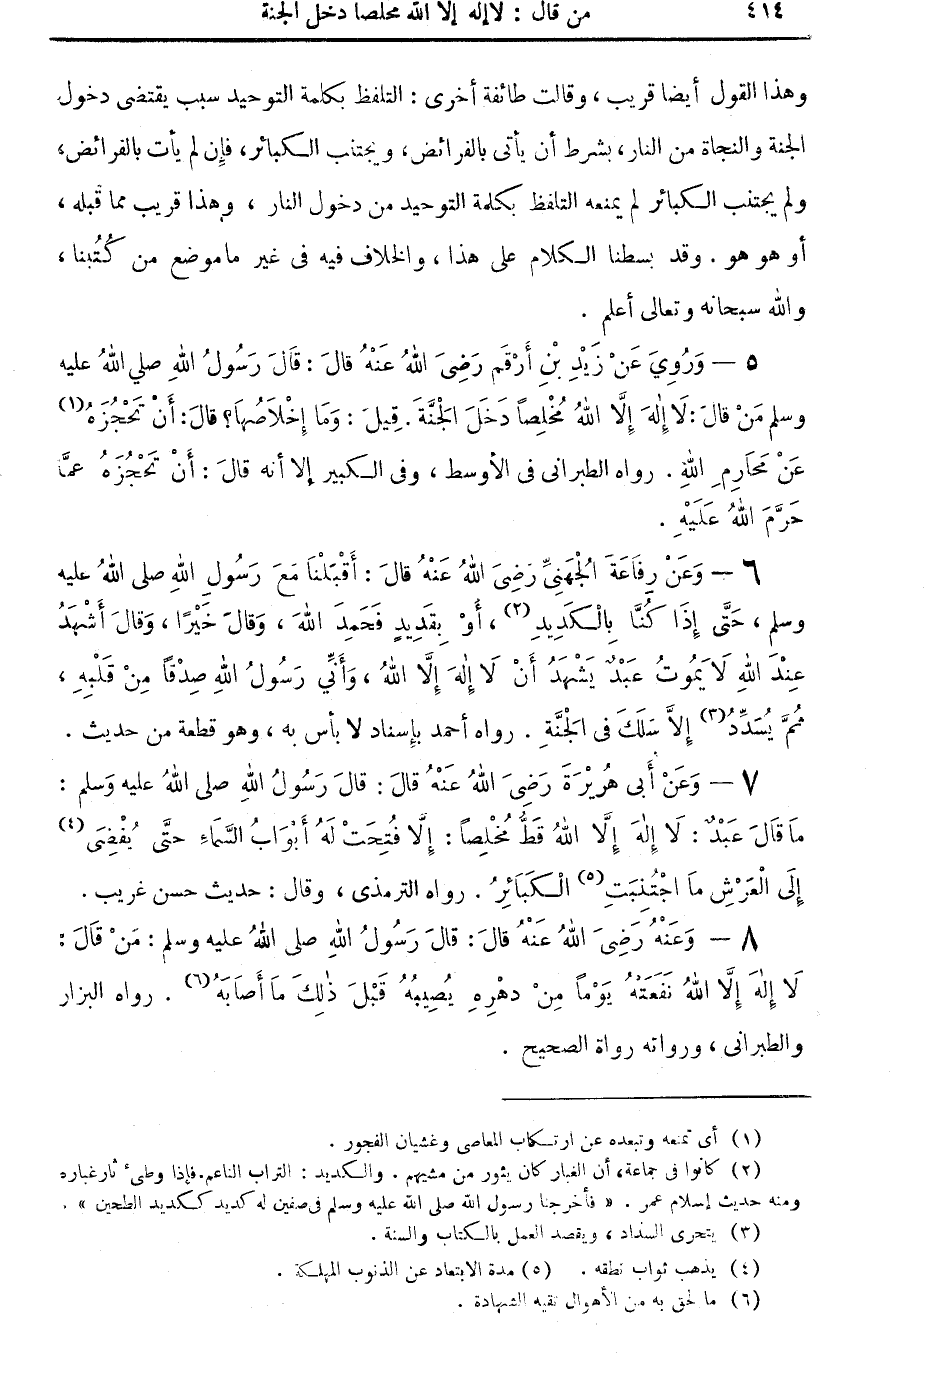 ٤١٤ من قال : لا إله إلا الله مخلصا دخل الجنة
وهذا القول أيضا قريب ، وقالت طائفة أخرى : التلفظ بكلمة التوحيد سبب يقتضى دخول
الجنة والنجاة من النار، بشرط أن يأتى بالفرائض، ويجتنب الكبائر، فإن لم يأت بالفرائض،
ولم يجتنب الكبائر لم يمنعه التلفظ بكلمة التوحيد من دخول النار ، وهذا قريب مما قبله ،
أو هو هو . وقد بسطنا الكلام على هذا ، والخلاف فيه فى غير ماموضع من كُتُبنا ،
والله سبحانه وتعالى أعلم .
٥ — وَرُوِيَ عَنْ زَيْدِ بْنِ أَرْقَم رَضِىَ اللهُ عَنْهُ قالَ : قَالَ رَسُولُ اللهِ صلي اللهُ عليه
وسلم مَنْ قالَ: لَا إِلٰهَ إِلَّا اللهُ مُخْلِصاً دَخَلَ الْجَنَّةَ . قِيلَ : وَمَا إِخْلَاصُهاَ؟ قالَ: أَنْ تَحْجُزَهُ (١)
عَنْ مَحَارِمِ اللهِ . رواه الطبرانى فى الأوسط ، وفى الكبير إلا أنه قالَ : أَنْ تَحْجُزَهُ عمَّا
حَرَّمَ اللهُ عَلَيْهِ .
٦ — وَعَنْ رِفَاعَةَ الْجُهَنِيِّ رَضِىَ اللهُ عَنْهُ قالَ : أَقْبَلْنَا مَعَ رَسُولِ اللهِ صلى اللهُ عليه
وسلم ، حَتَّى إِذَا كُنَّا بِالْكَدِيدِ (٢) ، أَوْ بِقَدِيدٍ فَحَمِدَ اللهَ ، وَقالَ خَيْرًا ، وَقالَ أَشْهَدُ
عِنْدَ اللهِ لَا يَمُوتُ عَبْدٌ يَشْهَدُ أَنْ لَا إِلٰهَ إِلَّا اللهُ ، وَأَنِّي رَسُولُ اللهِ صِدْقاً مِنْ قَلْبِهِ ،
ثُمَّ يُسَدِّدُ (٣) إِلَّا سَلَكَ فى الْجَنَّةِ . رواه أحمد بإسناد لا بأس به ، وهو قطعة من حديث .
٧ — وَعَنْ أَبى هُرَيْرَةَ رَضِىَ اللهُ عَنْهُ قالَ : قالَ رَسُولُ اللهِ صلى اللهُ عليه وَسلم :
مَا قالَ عَبْدٌ : لَا إِلٰهَ إِلَّا اللهُ قَطُّ مُخْلِصاً : إِلَّا فُتِحَتْ لَهُ أَبْوَابُ السَّمَاءِ حتَّى يُفْضِىَ (٤)
إِلَى الْعَرْشِ مَا اجْتُنِبَتِ (٥) الْكَبَائِرُ . رواه الترمذى ، وقال : حديث حسن غريب .
٨ — وَعَنْهُ رَضِىَ اللهُ عَنْهُ قالَ : قالَ رَسُولُ اللهِ صلى اللهُ عليه وسلم : مَنْ قَالَ :
لَا إِلٰهَ إِلَّا اللهُ نَفَعَتْهُ يَوْماً مِنْ دهْرِهِ يُصِيبُهُ قَبْلَ ذٰلِكَ مَا أَصَابَهُ (٦) . رواه البزار
والطبرانى ، ورواته رواة الصحيح .
(١) أى تمنعه وتبعده عن ارتكاب المعاصى وغشيان الفجور .
(٢) كانوا فى جماعة، أن الغبار كان يثور من مشيهم . والكديد : التراب الناعم.فإذا وطىء ثار غباره
ومنه حديث إسلام عمر . « فأخرجنا رسول الله صلى الله عليه وسلم فى صفين له كديد ككديد الطحين » .
(٣) يتحرى السداد ، ويقصد العمل بالكتاب والسنة .
(٤) يذهب ثواب نطقه . (٥) مدة الابتعاد عن الذنوب المهلكة .
(٦) ما لحق به من الأهوال تقيه الشهادة .